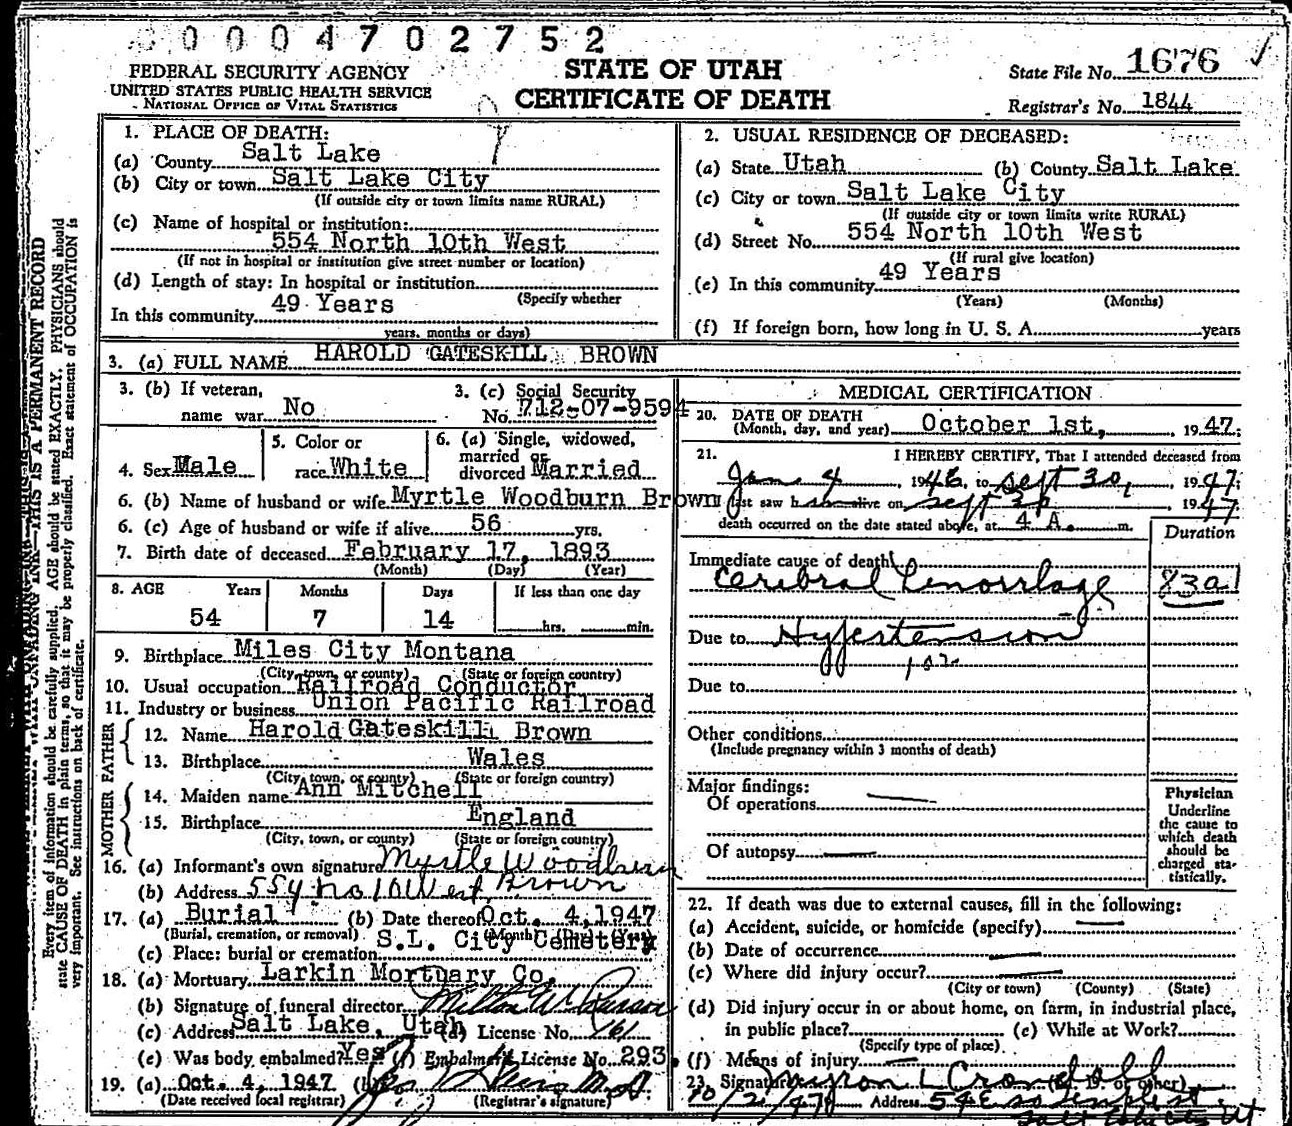 0004702752
FEDERAL SECURITY AGENCY
UNITED STATES PUBLIC HEALTH SERVICE
NATIONAL OFFICE OF VITAL STATISTICS
STATE OF UTAH
CERTIFICATE OF DEATH
State File No. 1676
Registrar's No. 1844
1. PLACE OF DEATH:
(a) County Salt Lake
(b) City or town Salt Lake City
(If outside city or town limits name RURAL)
(c) Name of hospital or institution:
554 North 10th West
(If not in hospital or institution give street number or location)
(d) Length of stay: In hospital or institution
(Specify whether
In this community 49 Years
years, months or days)
2. USUAL RESIDENCE OF DECEASED:
(a) State Utah (b) County Salt Lake
(c) City or town Salt Lake City
(If outside city or town limits write RURAL)
(d) Street No. 554 North 10th West
(If rural give location)
(e) In this community 49 Years
(Years) (Months)
(f) If foreign born, how long in U. S. A. years
3. (a) FULL NAME HAROLD GATESKILL BROWN
3. (b) If veteran,
name war No
3. (c) Social Security
No. 712-07-9594
4. Sex Male
5. Color or
race White
6. (a) Single, widowed,
married or
divorced Married
6. (b) Name of husband or wife Myrtle Woodburn Brown
6. (c) Age of husband or wife if alive 56 yrs.
7. Birth date of deceased February 17, 1893
(Month) (Day) (Year)
8. AGE Years Months Days If less than one day
54 7 14 hrs. min.
9. Birthplace Miles City Montana
(City, town, or county) (State or foreign country)
10. Usual occupation Railroad Conductor
11. Industry or business Union Pacific Railroad
FATHER
12. Name Harold Gateskill Brown
13. Birthplace Wales
(City, town, or county) (State or foreign country)
MOTHER
14. Maiden name Ann Mitchell
15. Birthplace England
(City, town, or county) (State or foreign country)
16. (a) Informant's own signature Myrtle Woodburn
Brown
(b) Address 554 No 10 West
17. (a) Burial (b) Date thereof Oct. 4, 1947
(Burial, cremation, or removal) (Month) (Day) (Year)
(c) Place: burial or cremation S.L. City Cemetery
18. (a) Mortuary Larkin Mortuary Co.
(b) Signature of funeral director
(c) Address Salt Lake, Utah (d) License No. 161
(e) Was body embalmed? Yes (f) Embalmer's License No. 293
19. (a) Oct. 4, 1947 (b)
(Date received local registrar) (Registrar's signature)
MEDICAL CERTIFICATION
20. DATE OF DEATH
(Month, day, and year) October 1st, 1947;
21. I HEREBY CERTIFY, That I attended deceased from
Jan 4, 1946, to Sept 30, 1947;
last saw h alive on Sept 30 1947
death occurred on the date stated above, at 4 A. m.
Duration
Immediate cause of death
Cerebral hemorrhage 83a1
Due to Hypertension
102
Due to
Other conditions
(Include pregnancy within 3 months of death)
Major findings:
Of operations
Of autopsy
Physician
Underline
the cause to
which death
should be
charged sta-
tistically.
22. If death was due to external causes, fill in the following:
(a) Accident, suicide, or homicide (specify)
(b) Date of occurrence
(c) Where did injury occur?
(City or town) (County) (State)
(d) Did injury occur in or about home, on farm, in industrial place,
in public place? (e) While at Work?
(Specify type of place)
(f) Means of injury
23. Signature Myron L Crandall (M. D. or other)
10/2/47 Address 54 E So Temple St.
Salt Lake City Ut
Every item of information should be carefully supplied. AGE should be stated EXACTLY. PHYSICIANS should
state CAUSE OF DEATH in plain terms, so that it may be properly classified. Exact statement of OCCUPATION is
very important. See instructions on back of certificate.
THIS IS A PERMANENT RECORD